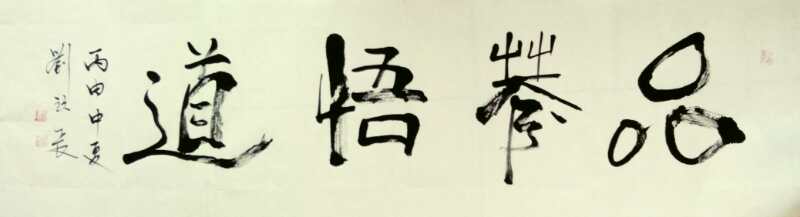 品茶悟道
丙申中夏
劉